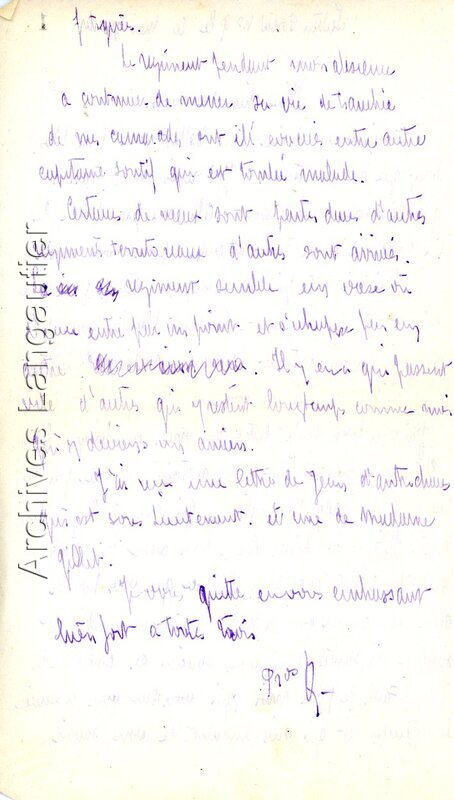 fatiguée.
Le régiment pendant mon absence
a continué de mener sa vie de tranchée
de mes camarades ont été évacués entre autre
capitaine Soutif qui est tombé malade.
Certains de nous sont partis dans d'autres
régiments territoriaux d'autres sont arrivés.
régiment semble un vase où
entre par un point et s'échappe par un
autre. Il y en a qui passent
vite d'autres qui y restent longtemps comme moi
qui y deviens un ancien.
J'ai reçu une lettre de Jean d'
qui est sous Lieutenant. et une de Madame
Gillet.
Je vous quitte en vous embrassant
bien fort a toutes trois
Archives Langautier